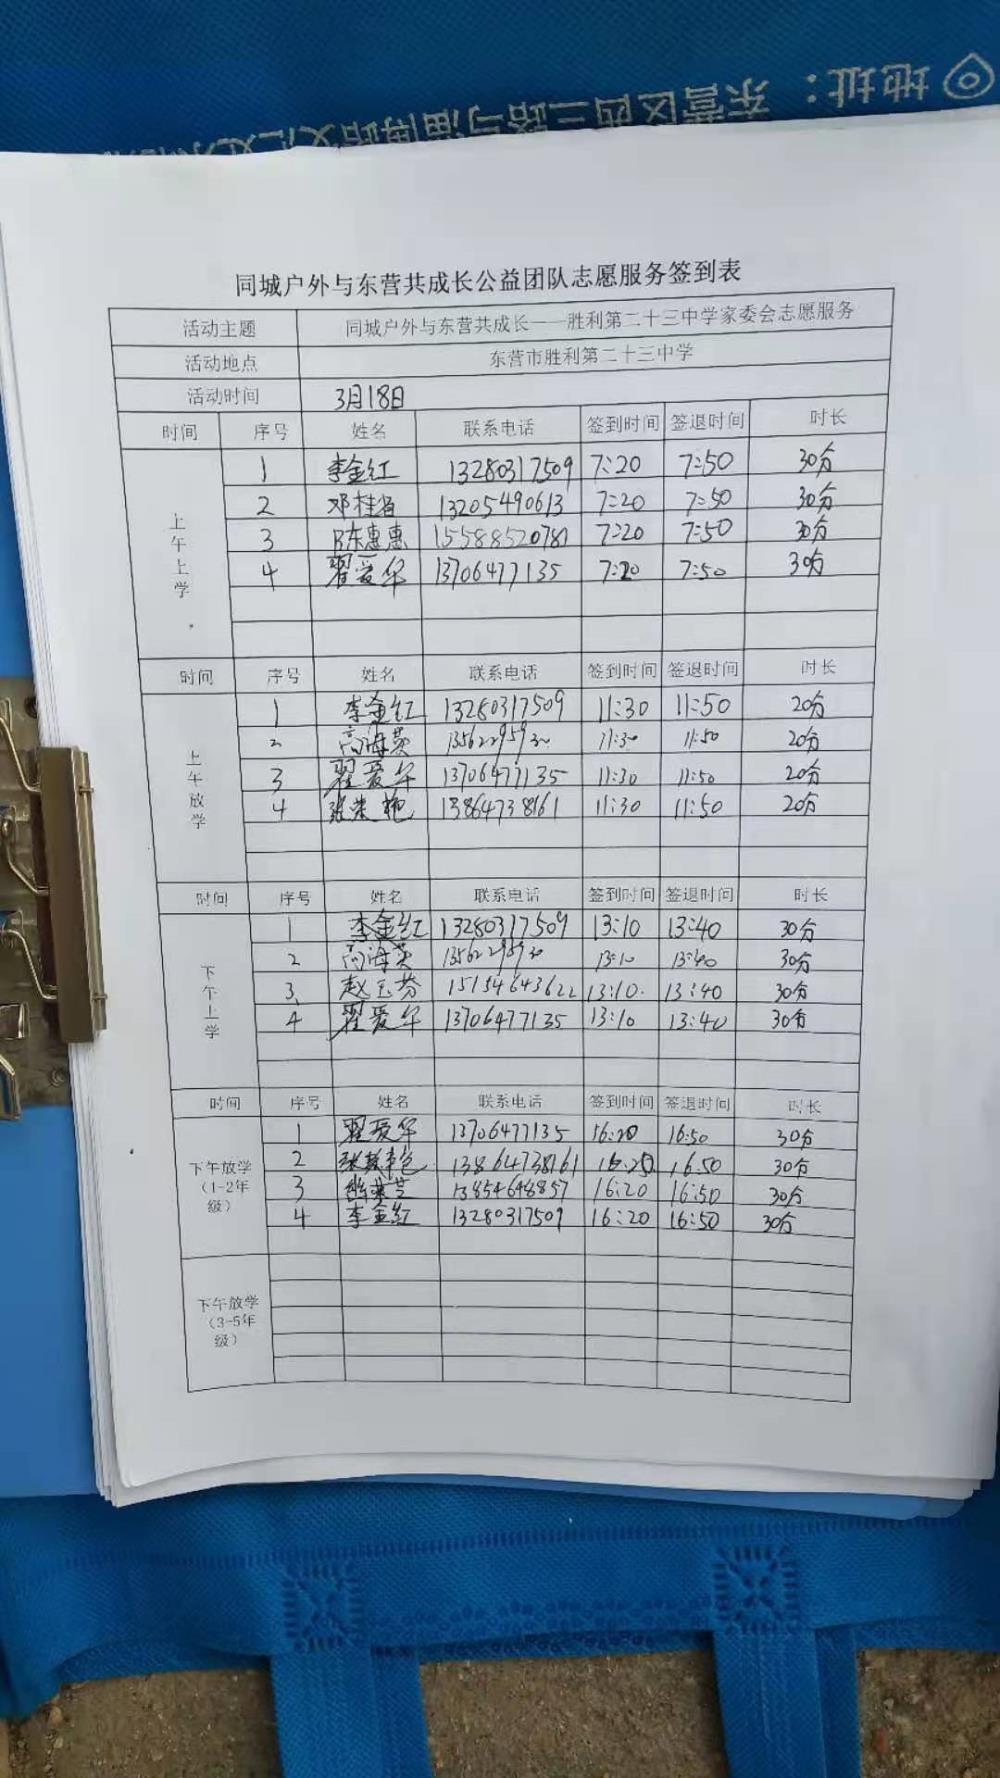 地址：东营区西三路与淄博路交汇处
同城户外与东营共成长公益团队志愿服务签到表
活动主题 同城户外与东营共成长——胜利第二十三中学家委会志愿服务
活动地点 东营市胜利第二十三中学
活动时间 3月18日
时间 序号 姓名 联系电话 签到时间 签退时间 时长
上午上学
1 李金红 13280317509 7:20 7:50 30分
2 邓桂 13205490613 7:20 7:50 30分
3 陈惠惠 15588520781 7:20 7:50 30分
4 翟爱华 13706477135 7:20 7:50 30分
时间 序号 姓名 联系电话 签到时间 签退时间 时长
上午放学
1 李金红 13280317509 11:30 11:50 20分
2 高海英 13562295930 11:30 11:50 20分
3 翟爱华 13706477135 11:30 11:50 20分
4 张 艳 13864738161 11:30 11:50 20分
时间 序号 姓名 联系电话 签到时间 签退时间 时长
下午上学
1 李金红 13280317509 13:10 13:40 30分
2 高海英 13562295930 13:10 13:40 30分
3 赵玉芬 15154643622 13:10 13:40 30分
4 翟爱华 13706477135 13:10 13:40 30分
时间 序号 姓名 联系电话 签到时间 签退时间 时长
下午放学（1-2年级）
1 翟爱华 13706477135 16:20 16:50 30分
2 张 艳 13864738161 16:20 16:50 30分
3 13854648857 16:20 16:50 30分
4 李金红 13280317509 16:20 16:50 30分
下午放学（3-5年级）